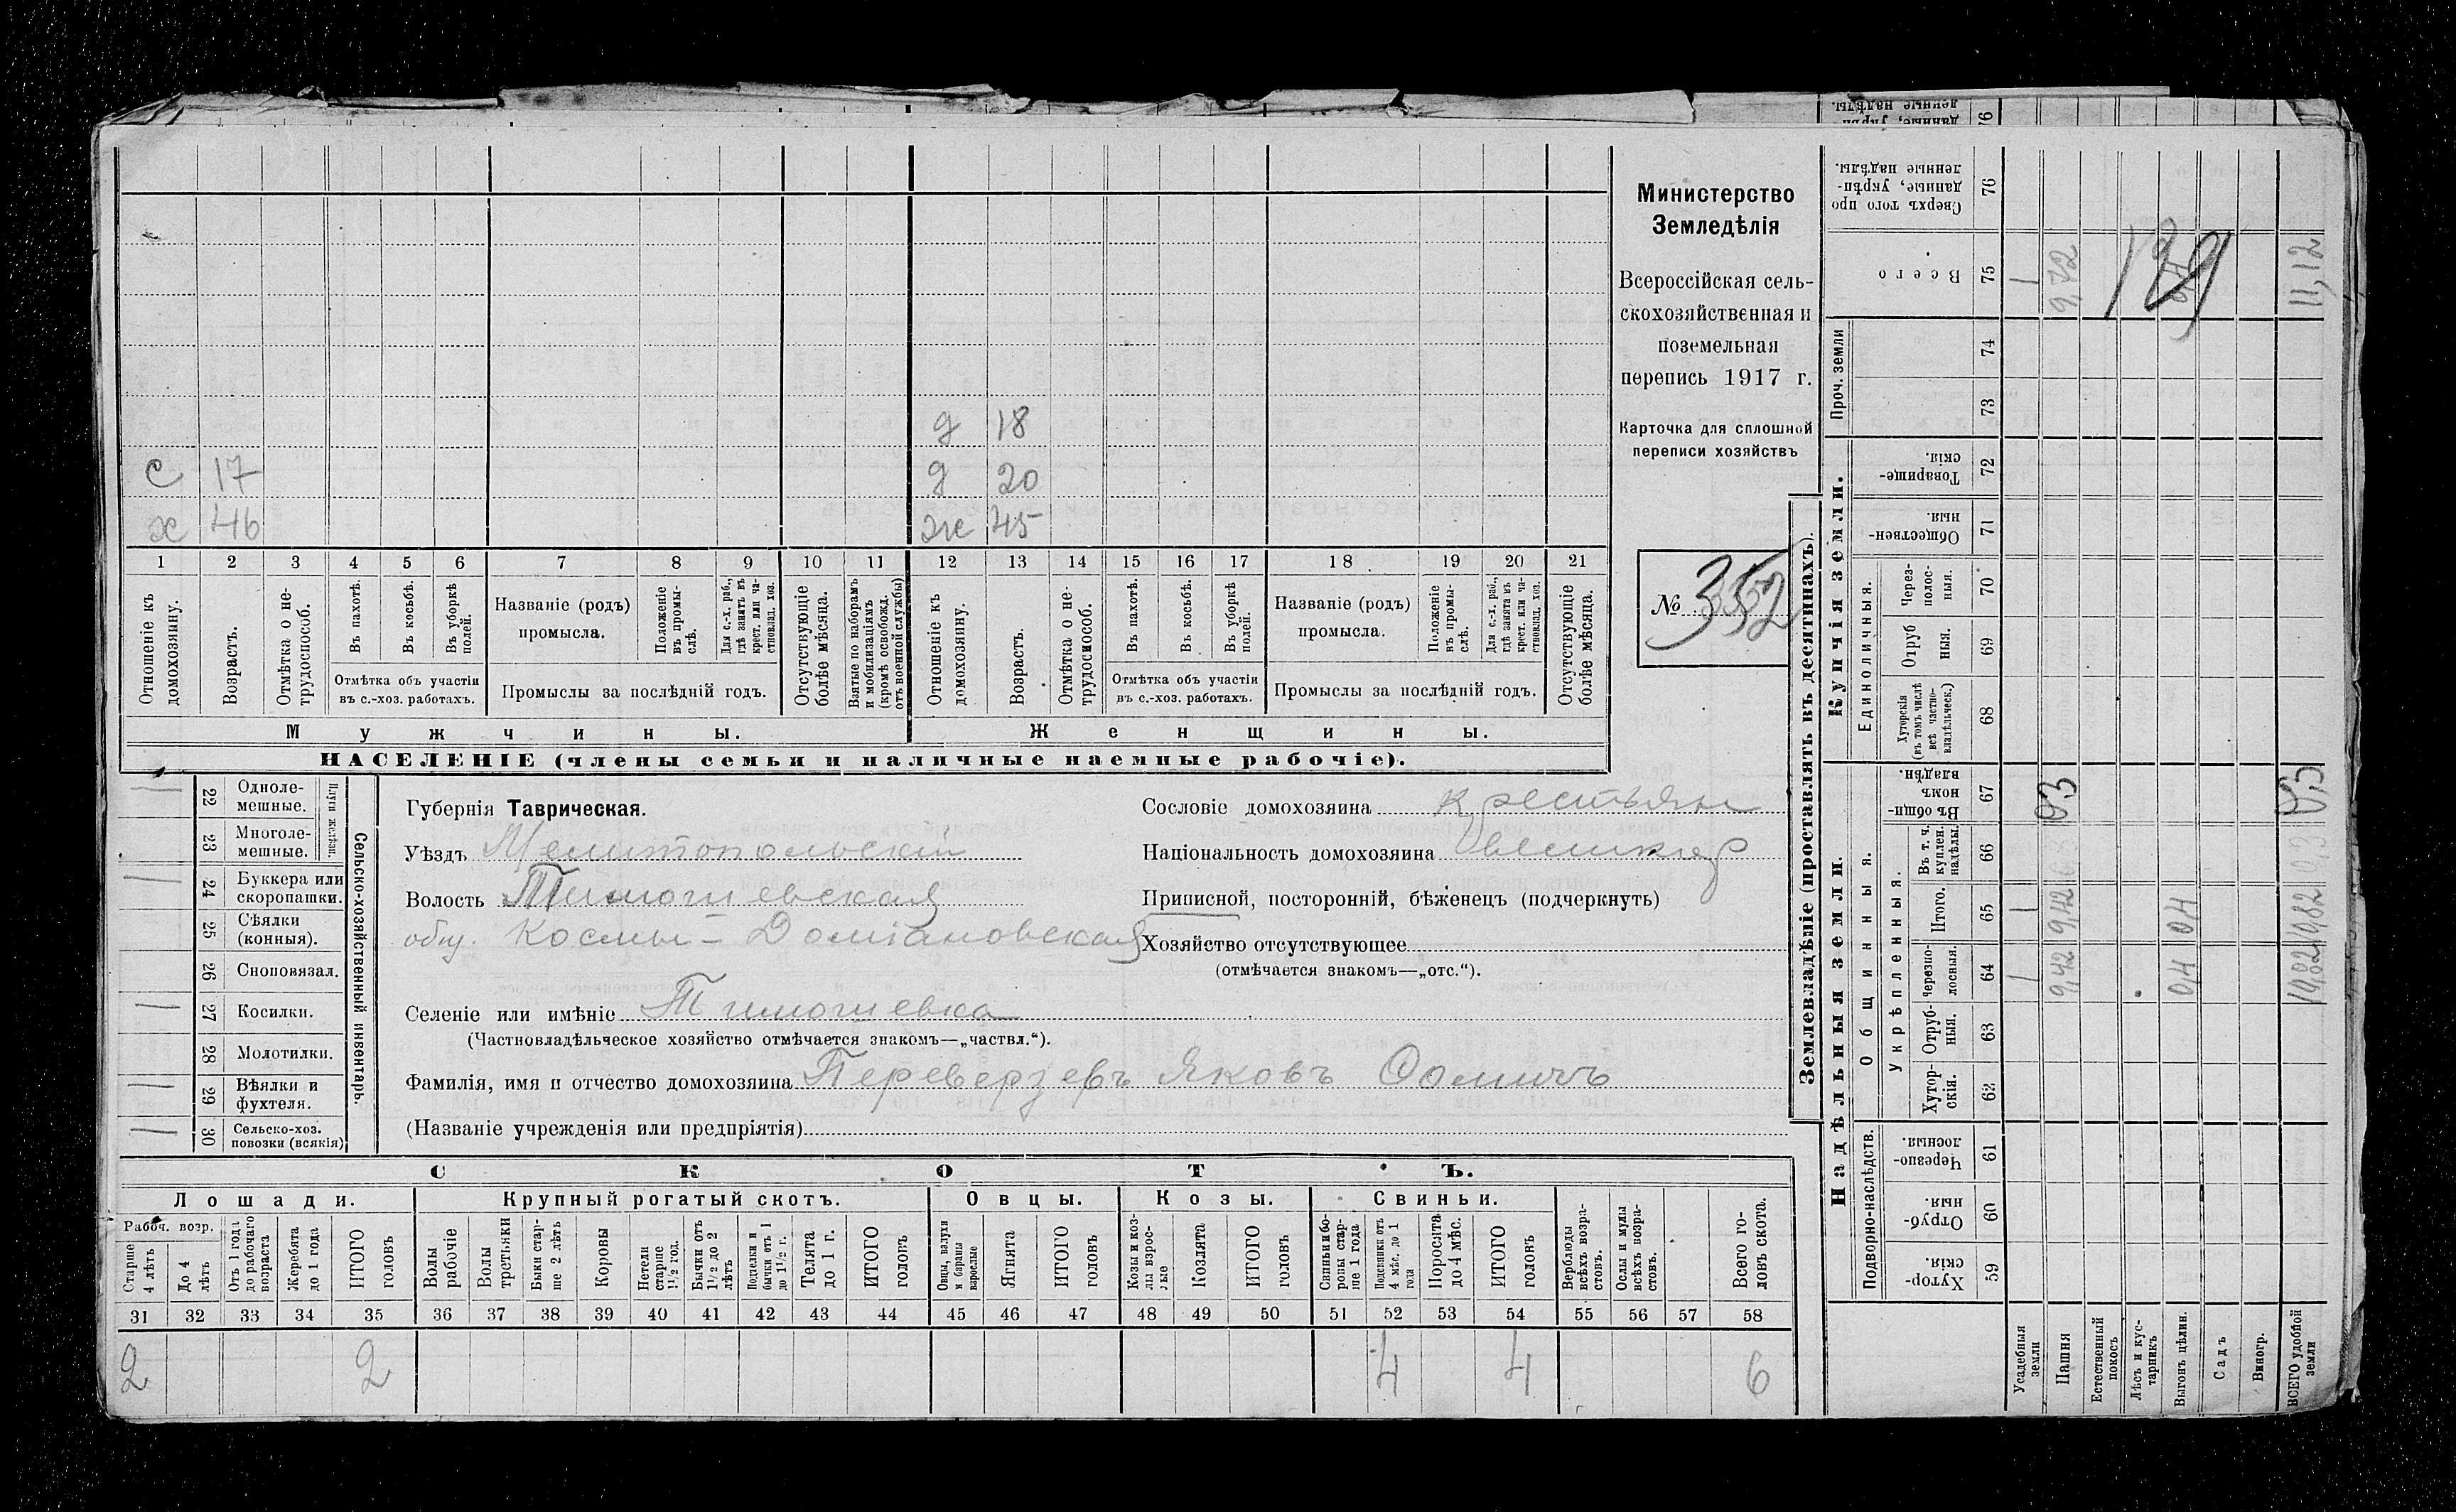 д 18
с 17 д 20
х 46 ж 45
1 2 3 4 5 6 7 8 9 10 11 12 13 14 15 16 17 18 19 20 21
Отношеніе къ домохозяину.
Возрастъ.
Отмѣтка о нетрудоспособ.
Въ пахотѣ.
Въ косьбѣ.
Въ уборкѣ полей.
Отмѣтка объ участіи
въ с.-хоз. работахъ.
Названіе (родъ)
промысла.
Положеніе въ промыслѣ.
Для с.-х. раб., гдѣ занятъ въ крест. или частновлад. хоз.
Промыслы за послѣдній годъ.
Отсутствующіе болѣе мѣсяца.
Взятые по наборамъ и мобилизаціямъ (кромѣ освобожд. отъ военной службы)
Отношеніе къ домохозяину.
Возрастъ.
Отмѣтка о нетрудоспособ.
Въ пахотѣ.
Въ косьбѣ.
Въ уборкѣ полей.
Отмѣтка объ участіи
въ с.-хоз. работахъ.
Названіе (родъ)
промысла.
Положеніе въ промыслѣ.
Для с.-х. раб., гдѣ занята въ крест. или частновлад. хоз.
Промыслы за послѣдній годъ.
Отсутствующіе болѣе мѣсяца.
Мужчины.
Женщины.
НАСЕЛЕНІЕ (члены семьи и наличные наемные рабочіе).
Министерство
Земледѣлія
Всероссійская сель-
скохозяйственная и
поземельная
перепись 1917 г.
Карточка для сплошной
переписи хозяйствъ
№ 352
22 Одноле-
мешные.
23 Многоле-
мешные.
Плуги желѣзн.
24 Буккера или
скоропашки.
25 Сѣялки
(конныя).
26 Сноповязал.
27 Косилки.
28 Молотилки.
29 Вѣялки и
фухтеля.
30 Сельско-хоз.
повозки (всякія)
Сельско-хозяйственный инвентарь.
Губернія Таврическая.
Уѣздъ Мелитопольскій
Волость Тимошевская
общ. Космы-Доміановская
Селеніе или имѣніе Тимошевка
(Частновладѣльческое хозяйство отмѣчается знакомъ—„частвл.“).
Фамилія, имя и отчество домохозяина Переверзевъ Яковъ Ѳомичъ
(Названіе учрежденія или предпріятія)
Сословіе домохозяина крестьян
Національность домохозяина великор
Приписной, посторонній, бѣженецъ (подчеркнуть)
Хозяйство отсутствующее
(отмѣчается знакомъ—„отс.“).
СКОТЪ.
Лошади. Крупный рогатый скотъ. Овцы. Козы. Свиньи.
Рабоч. возр.
Старше 4 лѣтъ
До 4 лѣтъ
Отъ 1 года до рабочаго возраста
Жеребята до 1 года
ИТОГО головъ
Волы рабочіе
Волы третьяки
Быки старше 2 лѣтъ
Коровы
Нетели старше 1½ год.
Бычки отъ 1½ до 2 лѣтъ
Подтелки и бычки отъ 1 до 1½ г.
Телята до 1 г.
ИТОГО головъ
Овцы, валухи и бараны взрослые
Ягнята
ИТОГО головъ
Козы и козлы взрослые
Козлята
ИТОГО головъ
Свиньи и боровы старше 1 года
Подсвинки отъ 4 мѣс. до 1 года
Поросята до 4 мѣс.
ИТОГО головъ
Верблюды всѣхъ возрастовъ.
Ослы и мулы всѣхъ возрастовъ.
Всего головъ скота.
31 32 33 34 35 36 37 38 39 40 41 42 43 44 45 46 47 48 49 50 51 52 53 54 55 56 57 58
2 2 4 4 6
Землевладѣніе (проставлять въ десятинахъ).
Надѣльныя земли.
Купчія земли.
Проч. земли
Подворно-наслѣдств.
Общинныя.
Укрѣпленныя.
Единоличныя.
Хутор-
скія. 59
Отруб-
ныя. 60
Черезпо-
лосныя. 61
Хутор-
скія. 62
Отруб-
ныя. 63
Черезпо-
лосныя. 64
Итого. 65
Въ т. ч. куплен. надѣлы. 66
Въ общин-
номъ владѣн. 67
Хуторскія (въ томъ числѣ всѣ частновладѣльческ.) 68
Отруб
ныя. 69
Через-
полос-
ныя. 70
Обществен-
ныя. 71
Товарище-
скія. 72
73
74
Всего 75
Сверхъ того про
данные, укрѣп-
ленные надѣлы. 76
Усадебныя земли
Пашня
Естественный покосъ
Лѣсъ и кустарникъ
Выгонъ цѣлин.
Садъ
Виногр.
ВСЕГО удобной земли
1 1 1
9,42 9,42 03 9,72
04 04
10,82 10,82 03 11,12